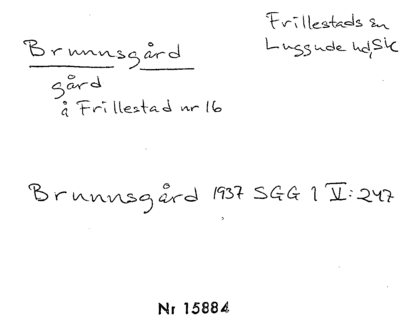 Brunnsgård
gård
å Frillestad nr 16
Frillestads sn
Luggude hd, Sk
Brunnsgård 1937 SGG 1 V: 247
Nr 15884